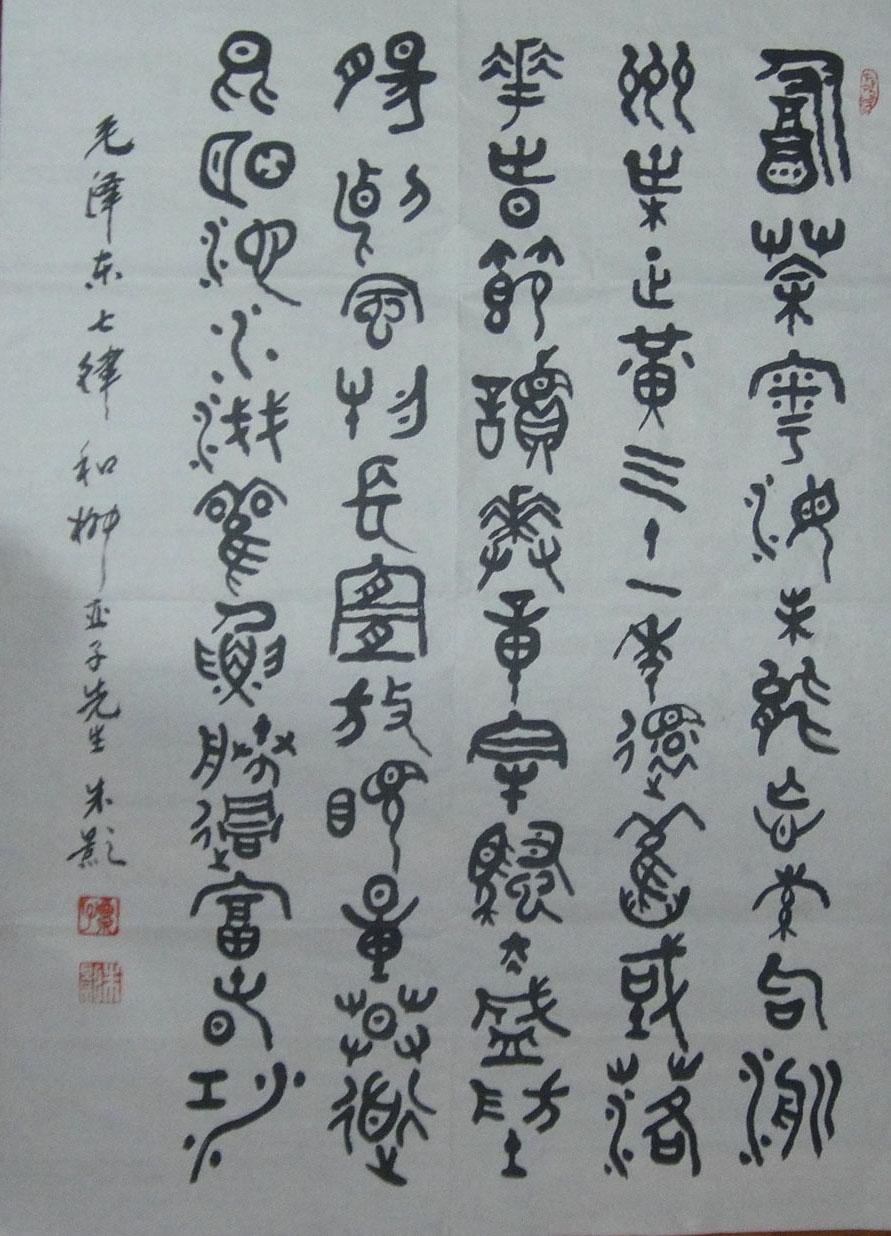 飲茶粵海未能忘索句渝
州葉正黃三十一年還舊國落
花時節讀華章牢騷太盛防
腸斷風物長宜放眼量莫道
昆明池水淺觀魚勝過富春江
毛泽东七律 和柳亚子先生 朱影